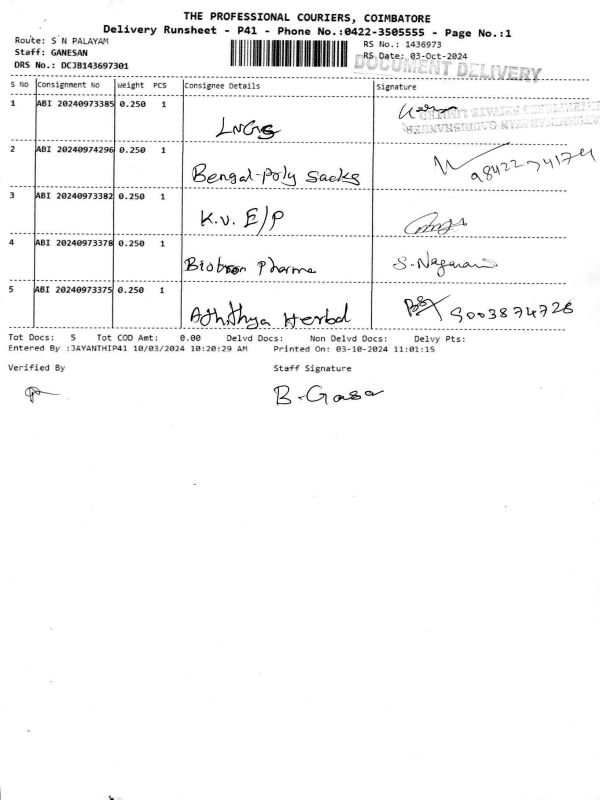 THE PROFESSIONAL COURIERS, COIMBATORE
Delivery Runsheet - P41 - Phone No.:0422-3505555 - Page No.:1
Route: S N PALAYAM
Staff: GANESAN
DRS No.: DCJB143697301
RS No.: 1436973
RS Date: 03-Oct-2024
DOCUMENT DELIVERY
S No Consignment No Weight PCS Consignee Details Signature
1 ABI 20240973385 0.250 1
2 ABI 20240974296 0.250 1 Bengal-Poly Sacks 9842274174
3 ABI 20240973382 0.250 1 K.V. E/P
4 ABI 20240973378 0.250 1 Biobron Pharma
5 ABI 20240973375 0.250 1 Adhithya Herbal 9003874726
Tot Docs: 5 Tot COD Amt: 0.00 Delvd Docs: Non Delvd Docs: Delvy Pts:
Entered By :JAYANTHIP41 10/03/2024 10:20:29 AM Printed On: 03-10-2024 11:01:15
Verified By Staff Signature